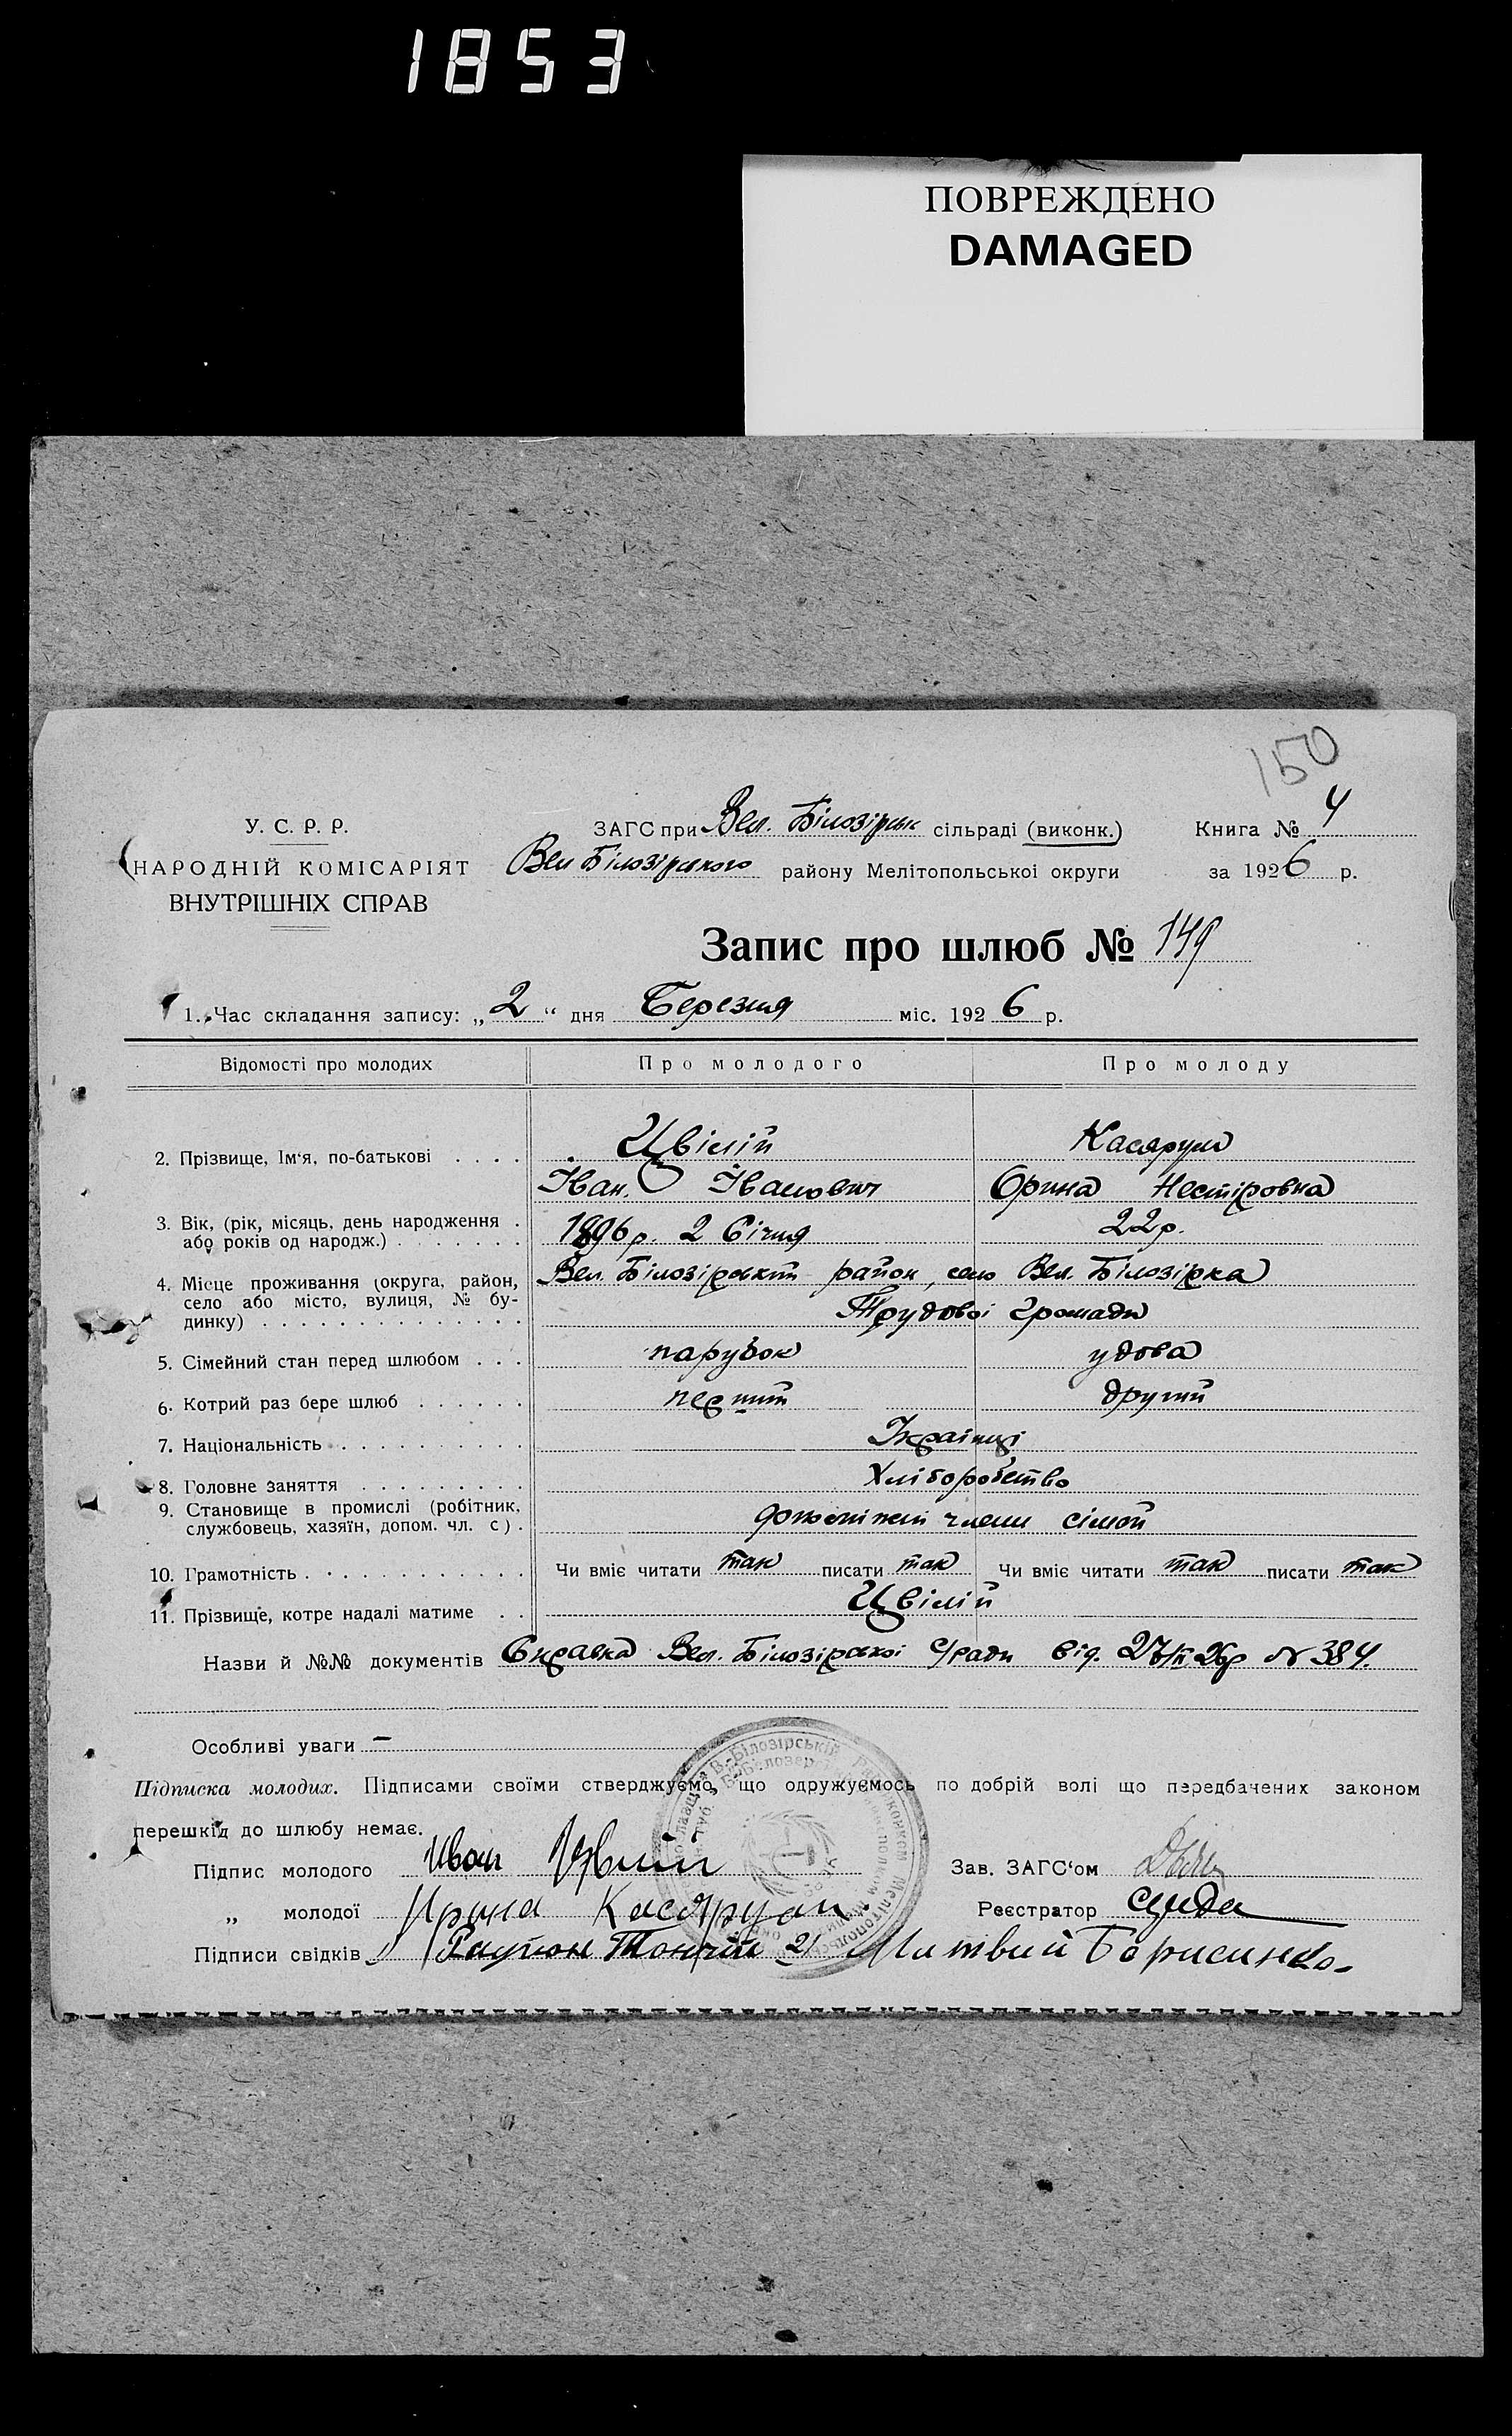 1853
ПОВРЕЖДЕНО
DAMAGED
150
У. С. Р. Р.
НАРОДНІЙ КОМІСАРІЯТ
ВНУТРІШНІХ СПРАВ
ЗАГС при Вел. Білозірськ сільраді (виконк.)
Вел Білозірського району Мелітопольскоі округи
Книга № 4
за 1926 р.
Запис про шлюб № 149
1. Час складання запису: „2“ дня Березня міс. 1926 р.
Відомості про молодих Про молодого Про молоду
2. Прізвище, Ім‘я, по-батькові . . . . Цвілій Касярум
Іван Іванович Орина Нестіровна
3. Вік, (рік, місяць, день народження .
або років од народж.) . . . . . . . 1896 р. 2 Січня 22 р.
4. Місце проживання (округа, район, Вел. Білозірский район, село Вел. Білозірка
село або місто, вулиця, № бу-
динку) . . . . . . . . . . . . . . Трудової громади
5. Сімейний стан перед шлюбом . . . парубок удова
6. Котрий раз бере шлюб . . . . . . перший другий
7. Національність . . . . . . . . . . Українці
8. Головне заняття . . . . . . . . . Хліборобство
9. Становище в промислі (робітник,
службовець, хазяїн, допом. чл. с) . члени сімой
10. Грамотність . . . . . . . . . . . Чи вміє читати так писати так Чи вміє читати так писати так
11. Прізвище, котре надалі матиме . . Цвілій
Назви й №№ документів Справка Вел. Білозірської с/ради від. 27/II-26р № 384.
Особливі уваги —
Підписка молодих. Підписами своїми стверджуємо, що одружуємось по добрій волі що передбачених законом
перешкід до шлюбу немає.
Підпис молодого Иван Цвилий Зав. ЗАГС‘ом
„ молодої Ирина Реєстратор
Підписи свідків 1/ 2/ Борисинко